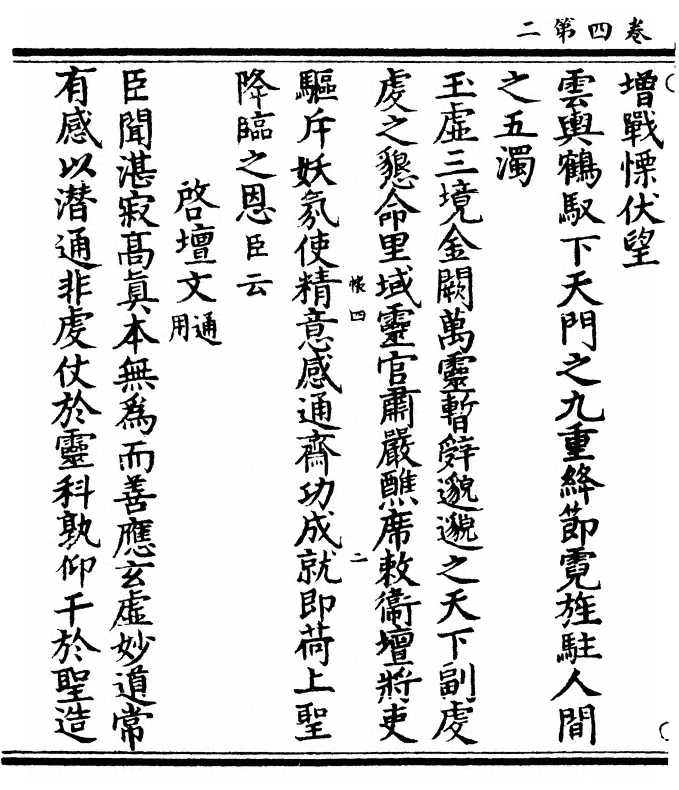 卷四第二
增戰慄伏望
雲輿鶴馭下天門之九重絳節霓旌駐人間
之五濁
玉虛三境金闕萬靈暫辤邈邈之天下副虔
虔之懇命里域靈官肅嚴醮席敕衞壇將吏
驅斥妖氛使精意感通齋功成就即荷上聖
降臨之恩臣云
悵四
二
啓壇文通用
臣聞湛寂髙眞本無爲而善應玄虛妙道常
有感以潛通非虔仗於靈科孰仰干於聖造